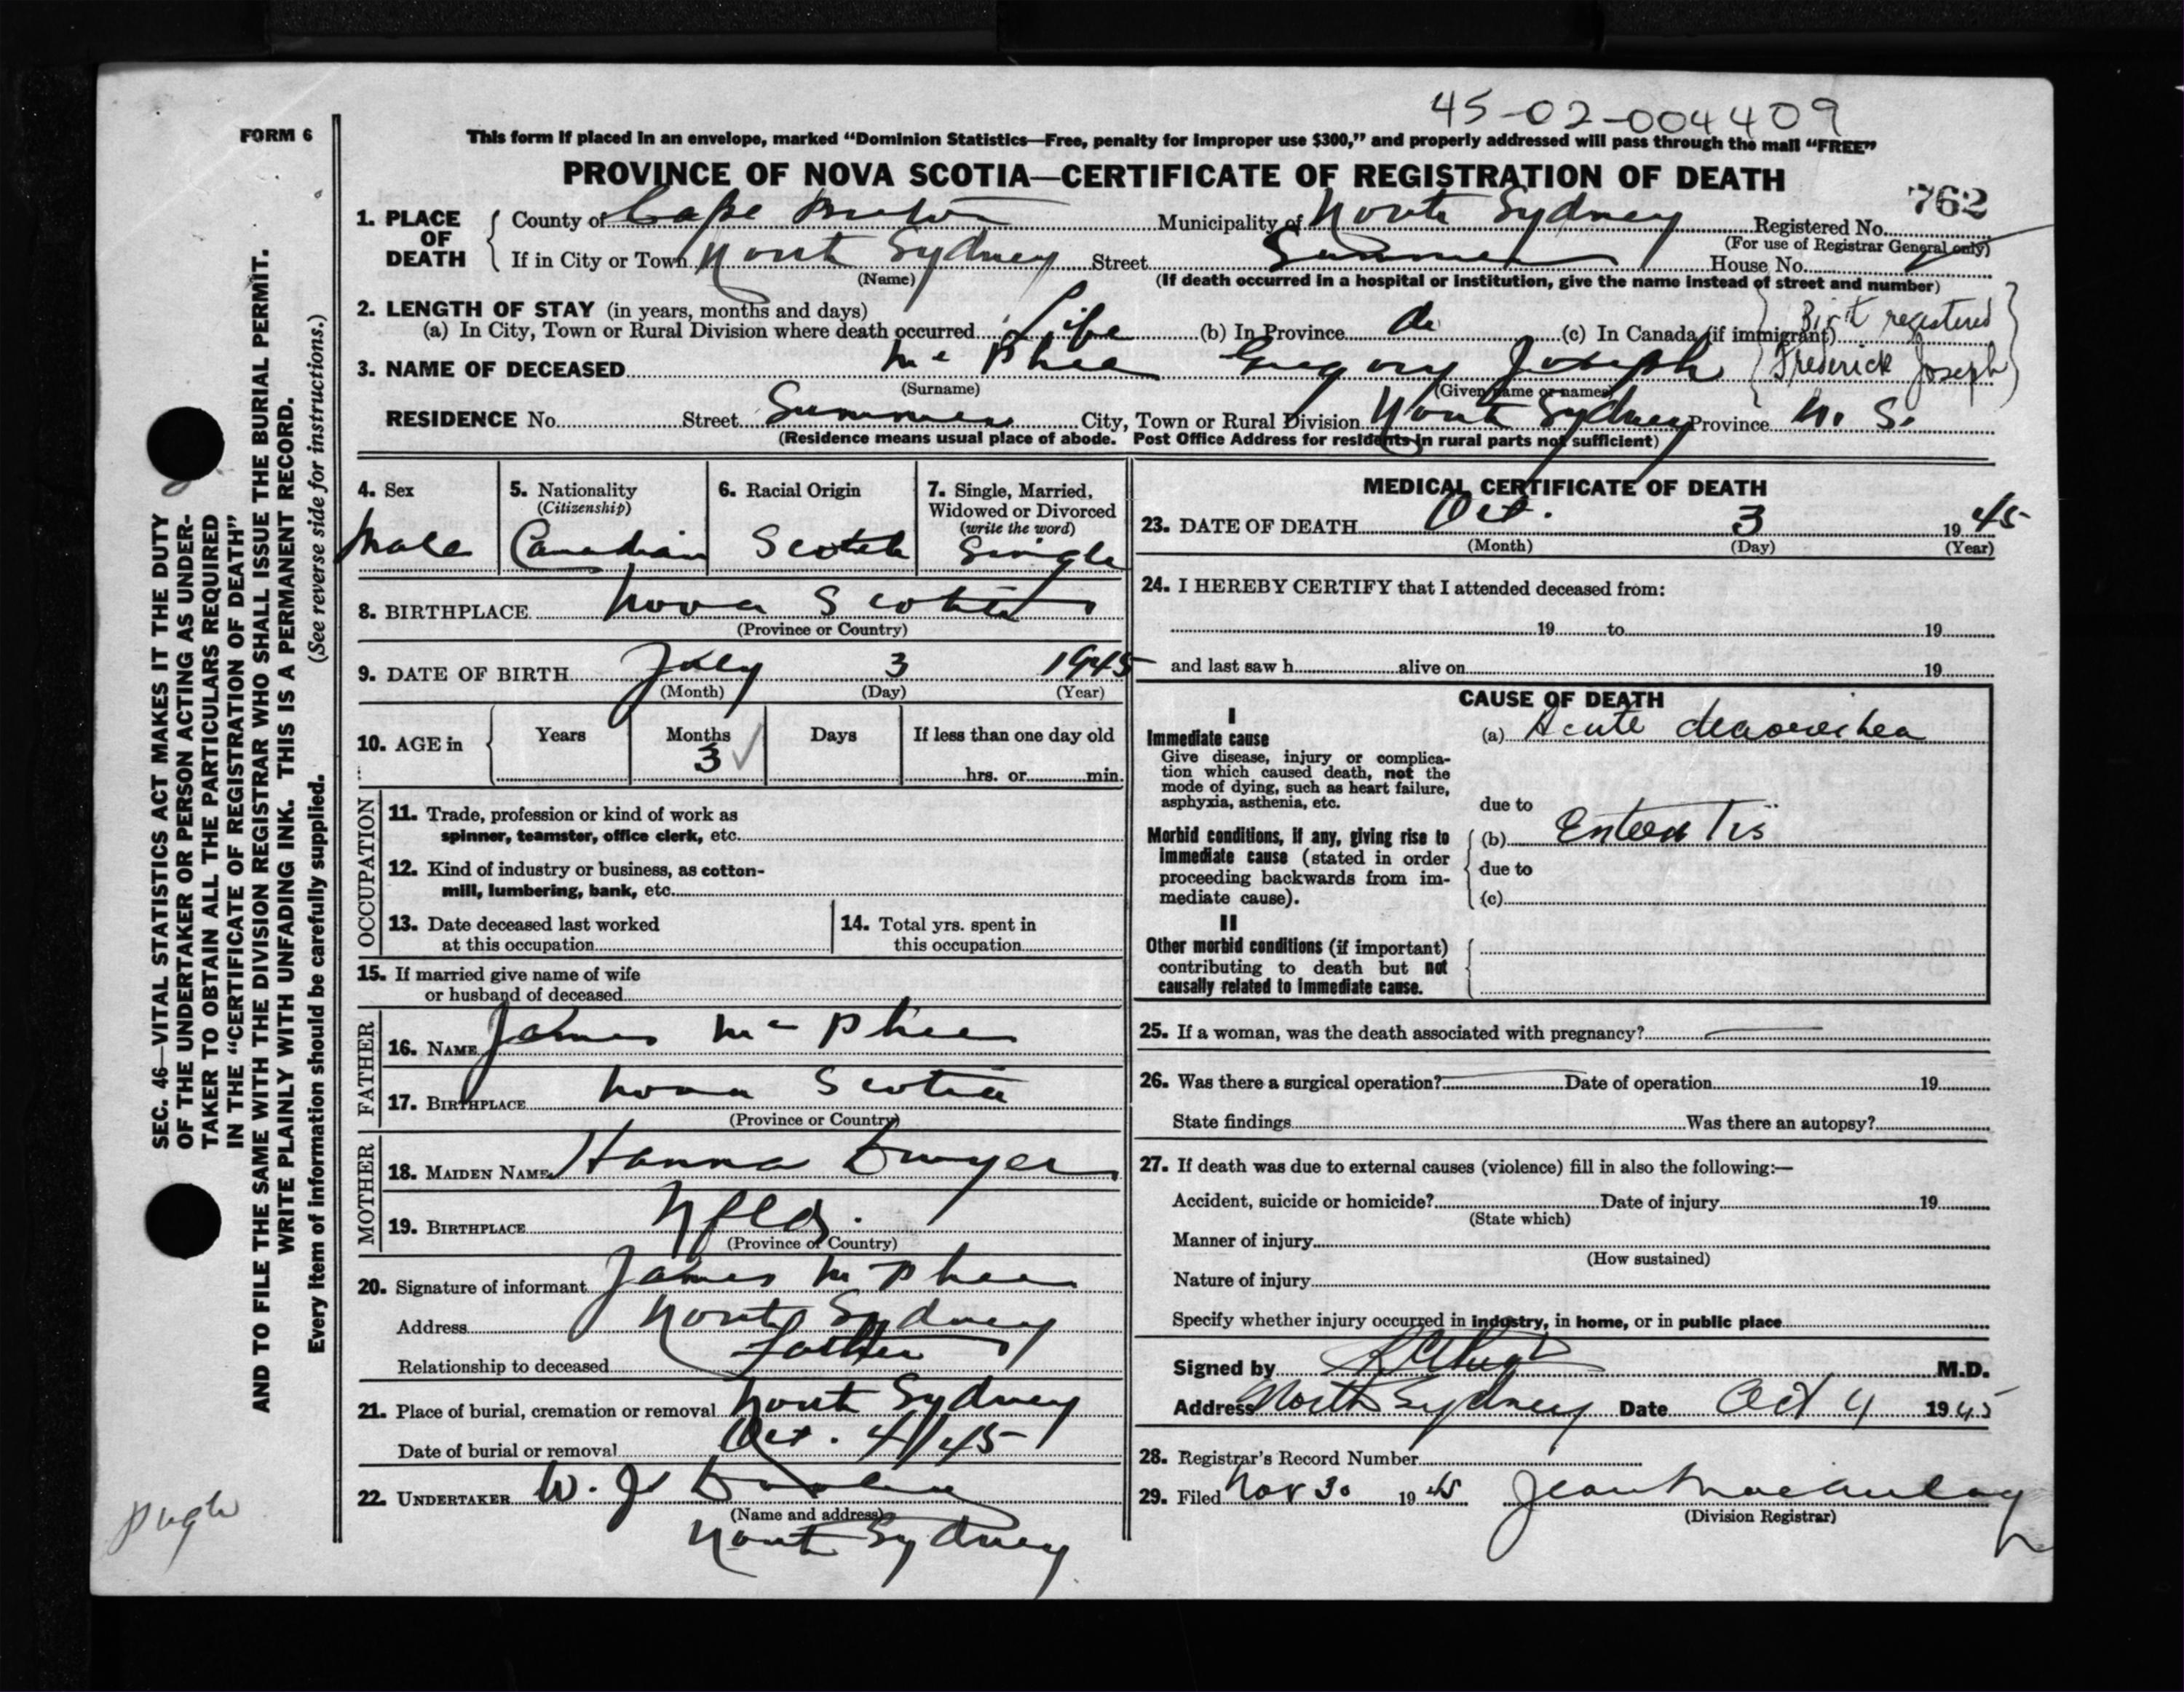 45-02-004409
FORM 6
This form if placed in an envelope, marked “Dominion Statistics—Free, penalty for improper use $300,” and properly addressed will pass through the mail “FREE”
PROVINCE OF NOVA SCOTIA—CERTIFICATE OF REGISTRATION OF DEATH
762
1. PLACE OF DEATH { County of Cape Breton Municipality of North Sydney Registered No.
(For use of Registrar General only)
If in City or Town North Sydney Street Summer House No.
(Name) (If death occurred in a hospital or institution, give the name instead of street and number)
2. LENGTH OF STAY (in years, months and days)
(a) In City, Town or Rural Division where death occurred Life (b) In Province do (c) In Canada (if immigrant)
{ Birth registered
Frederick Joseph }
3. NAME OF DECEASED Mc Phee Gregory Joseph
(Surname) (Given name or names)
RESIDENCE No. Street Summer City, Town or Rural Division North Sydney Province N. S.
(Residence means usual place of abode. Post Office Address for residents in rural parts not sufficient)
4. Sex
Male
5. Nationality
(Citizenship)
Canadian
6. Racial Origin
Scotch
7. Single, Married,
Widowed or Divorced
(write the word)
Single
8. BIRTHPLACE Nova Scotia
(Province or Country)
9. DATE OF BIRTH July 3 1945
(Month) (Day) (Year)
10. AGE in { Years Months Days If less than one day old
3 ✓ hrs. or min.
OCCUPATION
11. Trade, profession or kind of work as
spinner, teamster, office clerk, etc.
12. Kind of industry or business, as cotton-
mill, lumbering, bank, etc.
13. Date deceased last worked
at this occupation
14. Total yrs. spent in
this occupation
15. If married give name of wife
or husband of deceased
FATHER
16. NAME James Mc Phee
17. BIRTHPLACE Nova Scotia
(Province or Country)
MOTHER
18. MAIDEN NAME Hanna Dwyer
19. BIRTHPLACE Nfld.
(Province or Country)
20. Signature of informant James Mc Phee
Address North Sydney
Relationship to deceased Father
21. Place of burial, cremation or removal North Sydney
Date of burial or removal Oct. 4/45
22. UNDERTAKER W. J.
(Name and address)
North Sydney
MEDICAL CERTIFICATE OF DEATH
23. DATE OF DEATH Oct. 3 1945
(Month) (Day) (Year)
24. I HEREBY CERTIFY that I attended deceased from:
19 to 19
and last saw h alive on 19
CAUSE OF DEATH
I
Immediate cause
Give disease, injury or complica-
tion which caused death, not the
mode of dying, such as heart failure,
asphyxia, asthenia, etc.
(a) Acute
due to
Morbid conditions, if any, giving rise to
immediate cause (stated in order
proceeding backwards from im-
mediate cause).
(b) Enteritis
due to
(c)
II
Other morbid conditions (if important)
contributing to death but not
causally related to immediate cause.
25. If a woman, was the death associated with pregnancy?
26. Was there a surgical operation? Date of operation 19
State findings Was there an autopsy?
27. If death was due to external causes (violence) fill in also the following:—
Accident, suicide or homicide? Date of injury 19
(State which)
Manner of injury
(How sustained)
Nature of injury
Specify whether injury occurred in industry, in home, or in public place
Signed by M.D.
Address North Sydney Date Oct 4 1945
28. Registrar's Record Number
29. Filed Nov 30 1945 Jean MacAulay
(Division Registrar)
SEC. 46—VITAL STATISTICS ACT MAKES IT THE DUTY
OF THE UNDERTAKER OR PERSON ACTING AS UNDER-
TAKER TO OBTAIN ALL THE PARTICULARS REQUIRED
IN THE “CERTIFICATE OF REGISTRATION OF DEATH”
AND TO FILE THE SAME WITH THE DIVISION REGISTRAR WHO SHALL ISSUE THE BURIAL PERMIT.
WRITE PLAINLY WITH UNFADING INK. THIS IS A PERMANENT RECORD.
Every item of information should be carefully supplied. (See reverse side for instructions.)
Pugh